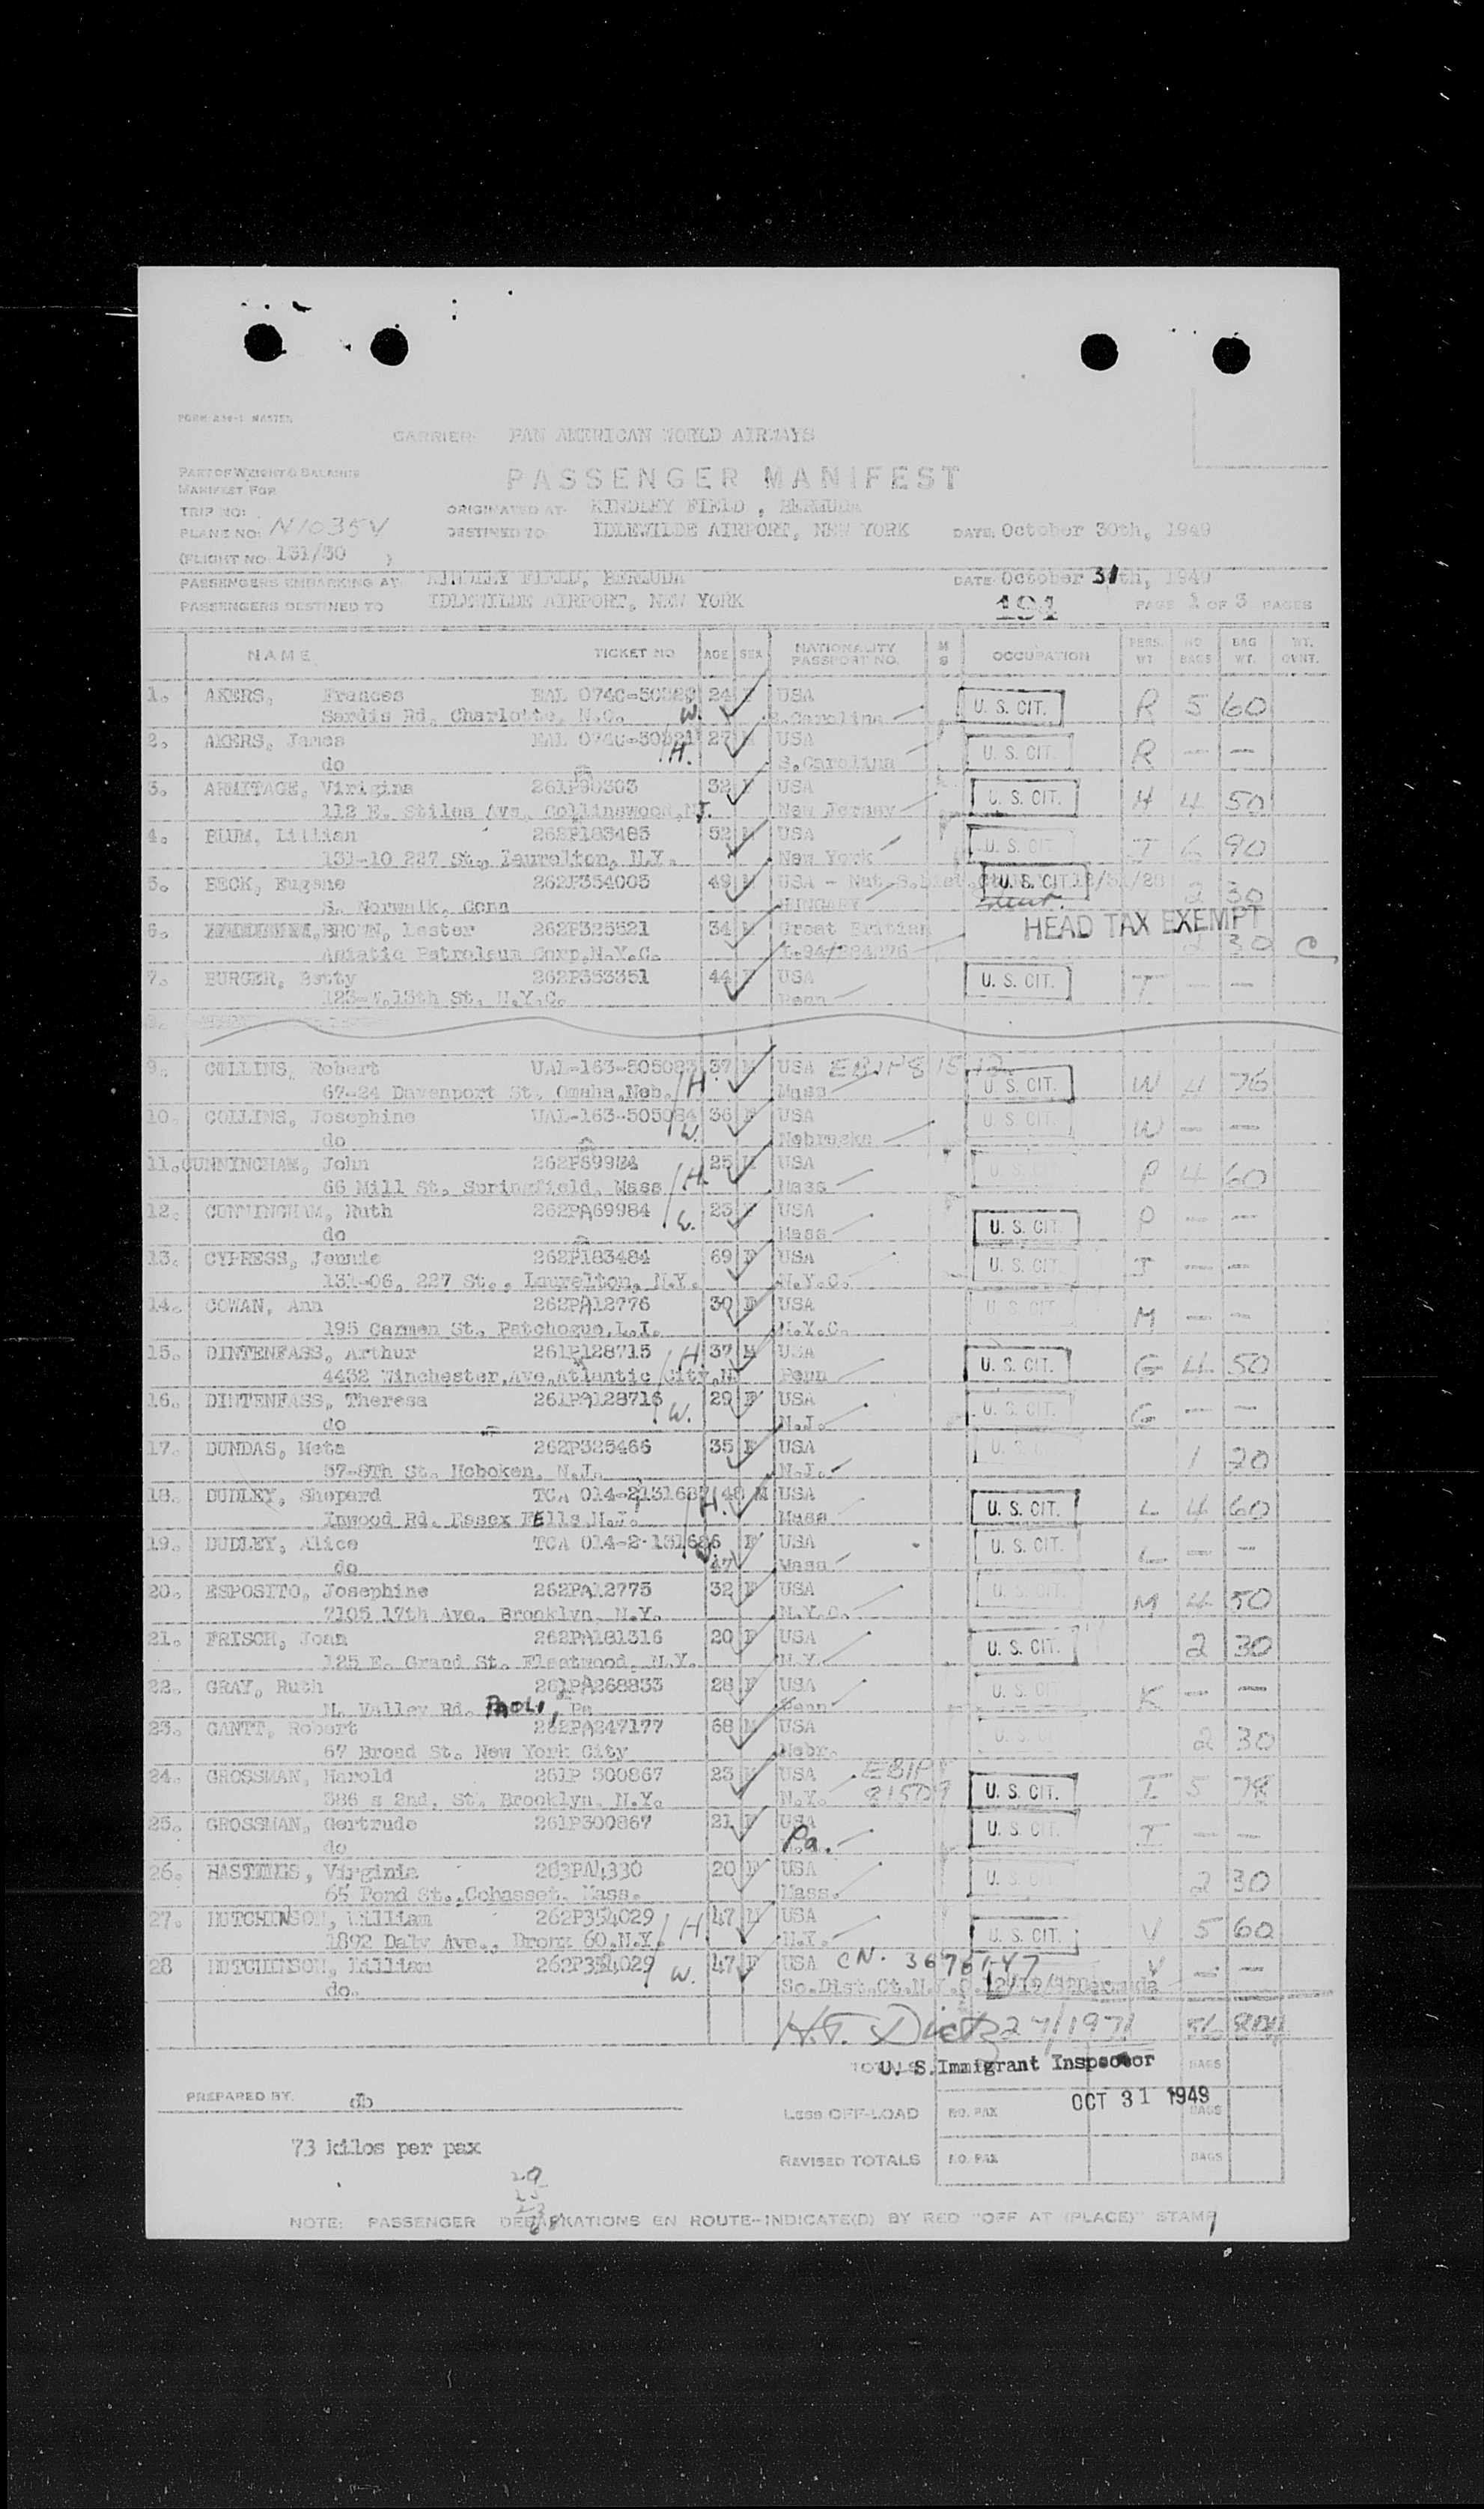 FORM 234-1 MASTER
CARRIER: PAN AMERICAN WORLD AIRWAYS
PART OF WEIGHT & BALANCE
MANIFEST FOR
PASSENGER MANIFEST
TRIP NO:
ORIGINATED AT: KINDLEY FIELD, BERMUDA
PLANE NO: N1035V
DESTINED TO IDLEWILDE AIRPORT, NEW YORK DATE: October 30th, 1949
(FLIGHT NO 131/30 )
PASSENGERS EMBARKING AT: KINDLEY FIELD, BERMUDA DATE: October 31th, 1949
PASSENGERS DESTINED TO IDLEWILDE AIRPORT, NEW YORK 191 PAGE 1 OF 3 PAGES
NAME TICKET NO AGE SEX NATIONALITY PASSPORT NO. M S OCCUPATION PERS. WT NO BAGS BAG WT. WT. OVHT.
1. AKERS, Frances EAL 0740-50 24 F USA U. S. CIT. R 5 60
Sardis Rd. Charlotte, N.C. W. S.Carolina
2. AKERS, James EAL 0740-50821 27 M USA U. S. CIT. R — —
do H. S.Carolina
3. ARMITAGE, Virigina 261P90303 32 F USA U. S. CIT. H 4 50
112 E. Stiles Ave, Collinswood, NJ. New Jersey
4. BLUM, Lillian 262P183485 52 USA U. S. CIT. I 6 90
131-10 227 St., Laurelton, N.Y. New York
5. BECK, Eugene 262P354005 49 M USA - Nat. U. S. CIT. 2 30
S. Norwalk, Conn HUNGARY
6. BROWN, Lester 262P325521 34 M Great Britian HEAD TAX EXEMPT 2 30 C
Asiatic Petroleum Corp, N.Y.C.
7. BURGER, Betty 262P353351 44 F USA U. S. CIT. T — —
123-W.13th St. N.Y.C. Penn
8.
9. COLLINS, Robert UAL-163-505083 37 M USA U. S. CIT. W 4 76
67-24 Davenport St. Omaha, Neb. H. Mass
10. COLLINS, Josephine UAL-163-505084 36 F USA U. S. CIT. W — —
do W. Nebraska
11. CUNNINGHAM, John 262P69984 25 M USA P 4 60
66 Mill St. Springfield, Mass H. Mass
12. CUNNINGHAM, Ruth 262PA69984 23 F USA U. S. CIT. P — —
do W. Mass
13. CYPRESS, Jennie 262P183484 69 F USA U. S. CIT. I — —
131-06, 227 St., Laurelton, N.Y. N.Y.C.
14. COWAN, Ann 262PA12776 30 F USA U. S. CIT M — —
195 Carmen St. Patchogue, L.I. N.Y.C.
15. DINTENFASS, Arthur 261P128715 H 37 M USA U. S. CIT. G 4 50
4432 Winchester, Ave, Atlantic City, N Penn
16. DINTENFASS, Theresa 261PA128716 29 F USA U. S. CIT. G — —
do W. N.J.
17. DUNDAS, Meta 262P325466 35 F USA 1 20
57-8Th St. Hoboken, N.J. N.J.
18. DUDLEY, Shepard TCA 014-2131687 48 M USA U. S. CIT. L 4 60
Inwood Rd. Essex FElls N.J. H. Mass
19. DUDLEY, Alice TCA 014-2-131686 F USA U. S. CIT. L — —
do 47 Mass
20. ESPOSITO, Josephine 262PA12775 32 F USA U. S. CIT. M 4 50
7105 17th Ave. Brooklyn N.Y. N.Y.C.
21. FRISCH, Joan 262PA181316 20 F USA U. S. CIT. 2 30
125 E. Grand St. Fleetwood, N.Y. N.Y.
22. GRAY, Ruth 261PA268833 28 F USA U. S. CIT K — —
N. Valley Rd. PAOLI, Pa Penn
23. GANTT, Robert 262PA247177 68 M USA 2 30
67 Broad St. New York City Nebr.
24. GROSSMAN, Harold 261P 300867 23 M USA U. S. CIT. I 5 78
386 s 2nd. St. Brooklyn, N.Y. N.Y.
25. GROSSMAN, Gertrude 261P300867 21 F USA U. S. CIT. I — —
do Pa.
26. HASTINGS, Virginia 263PA4330 20 F USA U. S. CIT 2 30
65 Pond St., Cohasset, Mass. Mass.
27. HUTCHINSON, William 262P354029 47 M USA U. S. CIT. V 5 60
1892 Daly Ave., Bronx 60, N.Y. H N.Y.
28 HUTCHINSON, Lillian 262P354029 47 F USA CN. V — —
do. W. So.Dist.Ct.N.Y.C. 12/12/32 Bermuda
H.T. Dietz
TOTALS U. S. Immigrant Inspector BAGS
PREPARED BY: db
LESS OFF-LOAD NO. PAX OCT 31 1949 BAGS
73 kilos per pax
REVISED TOTALS NO. PAX BAGS
NOTE: PASSENGER DEBARKATIONS EN ROUTE--INDICATE(D) BY RED "OFF AT (PLACE)" STAMP